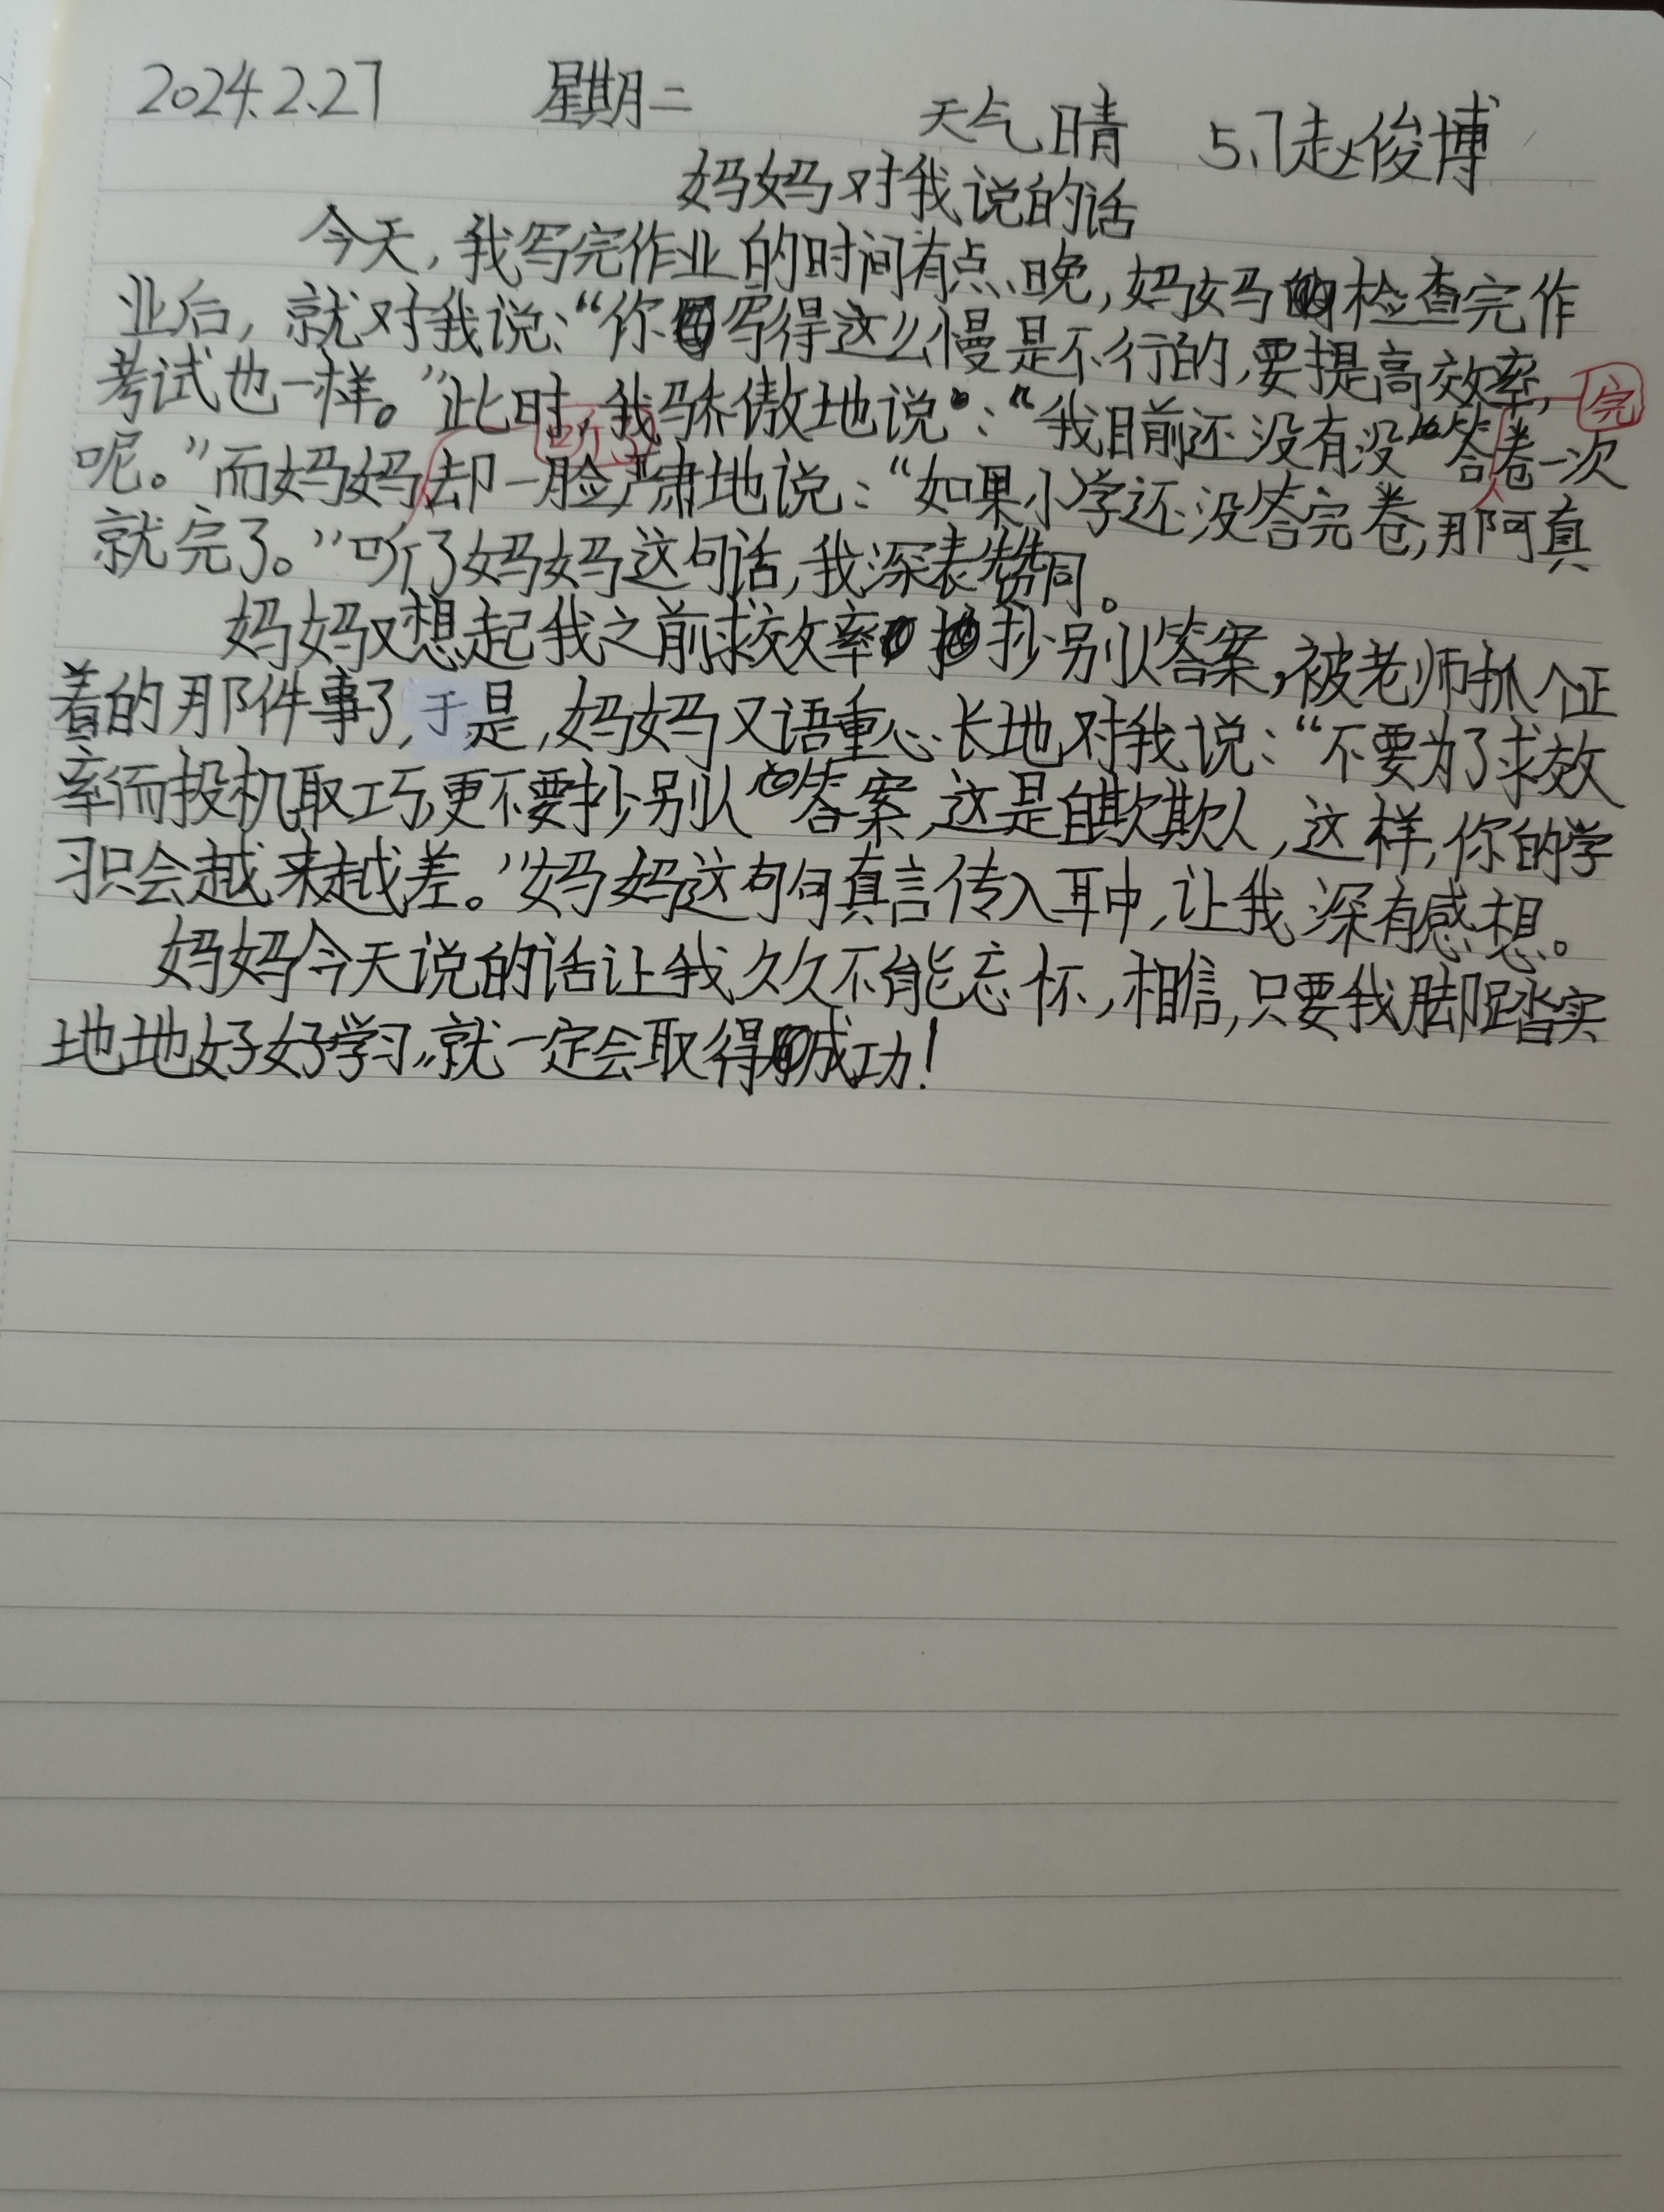 2024.2.27 星期二 天气晴 5.7赵俊博
妈妈对我说的话
今天，我写完作业的时间有点晚，妈妈检查完作
业后，就对我说：“你写得这么慢是不行的，要提高效率，
考试也一样。”此时，我骄傲地说：“我目前还没有没答卷一次
完
听了
呢。”而妈妈却一脸严肃地说：“如果小学还没答完卷，那阿真
就完了。”听了妈妈这句话，我深表赞同。
妈妈又想起我之前求效率抄别人答案，被老师抓个正
着的那件事了，于是，妈妈又语重心长地对我说：“不要为了求效
率而投机取巧，更不要抄别人答案，这是自欺欺人，这样，你的学
习只会越来越差。”妈妈这句句真言传入耳中，让我深有感想。
妈妈今天说的话让我久久不能忘怀，相信，只要我脚踏实
地地好好学习，就一定会取得成功！